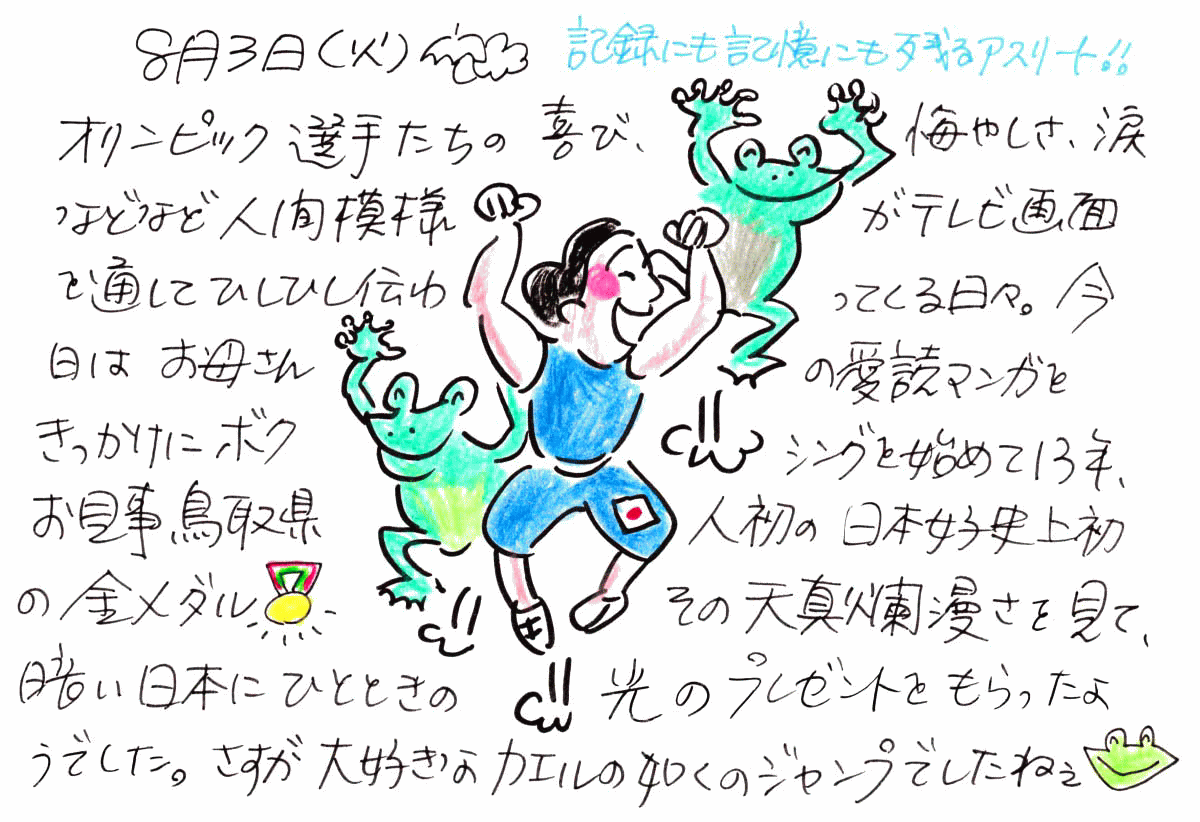 8月3日(火)
記録にも記憶にも残るアスリート!!
オリンピック選手たちの喜び、悔やしさ、涙
などなど人間模様がテレビ画面
を通してひしひし伝わってくる日々。今
日はお母さんの愛読マンガを
きっかけにボクシングを始めて13年、
お見事鳥取県人初の日本女子史上初
の金メダル。その天真爛漫さを見て、
暗い日本にひとときの光のプレゼントをもらったよ
うでした。さすが大好きなカエルの如くのジャンプでしたねぇ